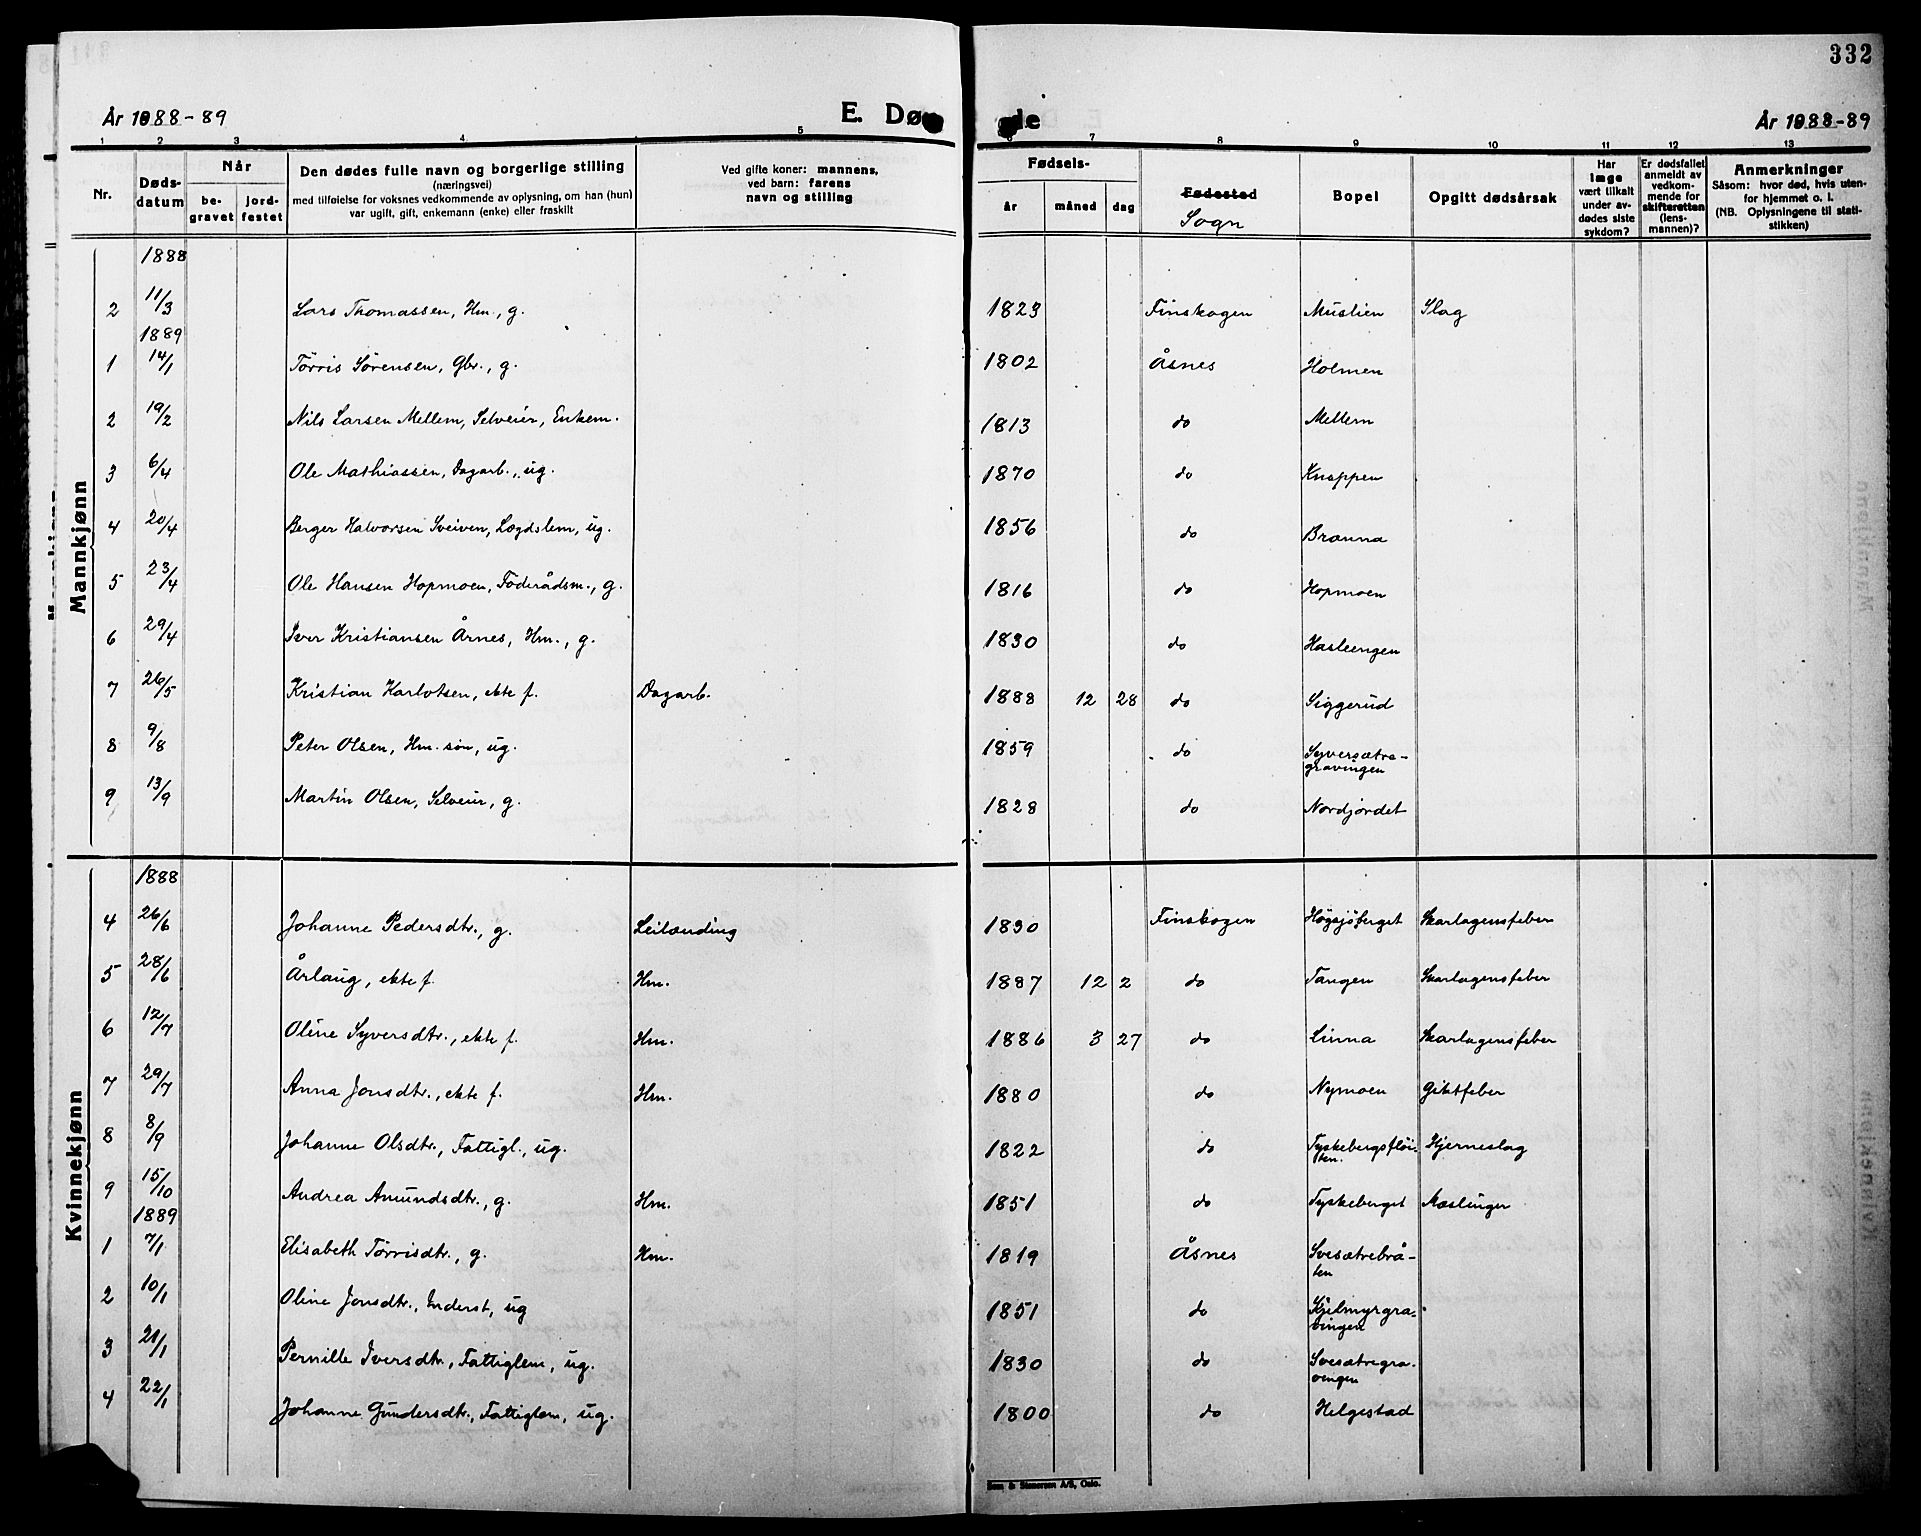 332
År 1888-89
E. Dø de
År 1888-89
1 2 3 4 5 6 7 8 9 10 11 12 13
Nr.
Døds-
datum
Når
be-
gravet
jord-
festet
Den dødes fulle navn og borgerlige stilling
(næringsvei)
med tilføielse for voksnes vedkommende av oplysning, om han (hun)
var ugift, gift, enkemann (enke) eller fraskilt
Ved gifte koner: mannens,
ved barn: farens
navn og stilling
Fødsels-
år måned dag
Fødested
Sogn
Bopel
Opgitt dødsårsak
Har
læge
vært tilkalt
under av-
dødes siste
sykdom?
Er dødsfallet
anmeldt av
vedkom-
mende for
skifteretten
(lens-
mannen)?
Anmerkninger
Såsom: hvor død, hvis uten-
for hjemmet o. l.
(NB. Oplysningene til stati-
stikken)
Mannkjønn
1888
2 11/3 Lars Thomassen, Hm., g. 1823 Finskogen Muslien Slag
1889
1 14/1 Tørris Sørensen, Gbr., g. 1802 Åsnes Holmen
2 19/2 Nils Larsen Mellem, Selveier, Enkem. 1813 do Mellem
3 6/4 Ole Mathiassen, Dagarb., ug. 1870 do Knappen
4 20/4 Berger Halvorsen Sveiven, Lægdslem, ug. 1856 do Branna
5 23/4 Ole Hansen Hopmoen, Føderådsm., g. 1816 do Hopmoen
6 29/4 Iver Kristiansen Årnes, Hm., g. 1830 do Hasleengen
7 26/5 Kristian Karlotsen, ekte f. Dagarb. 1888 12 28 do Siggerud
8 9/8 Peter Olsen, Hm. søn, ug. 1859 do Syversætre-
gravingen
9 13/9 Martin Olsen, Selveier, g. 1828 do Nordjordet
Kvinnekjønn
1888
4 26/6 Johanne Pedersdtr., g. Leilænding 1830 Finskogen Högsjöberget Skarlagensfeber
5 28/6 Årlaug, ekte f. Hm. 1887 12 2 do Tangen Skarlagensfeber
6 12/7 Oline Syversdtr., ekte f. Hm. 1886 3 27 do Linna Skarlagensfeber
7 29/7 Anna Jonsdtr., ekte f. Hm. 1880 do Nymoen Giktfeber
8 8/9 Johanne Olsdtr., Fattigl., ug. 1822 do Tyskebergsflöi-
ten. Hjerneslag
9 15/10 Andrea Amundsdtr., g. Hm. 1851 do Tyskeberget Mæslinger
1889
1 7/1 Elisabeth Tørrisdtr., g. Hm. 1819 Åsnes Svesætrebrå-
ten
2 10/1 Oline Jonsdtr., Inderst, ug 1851 do Kjelmyrgra-
vingen
3 21/1 Pernille Iversdtr., Fattiglem, ug. 1830 do Svesætregra-
vingen
4 22/1 Johanne Gundersdtr., Fattiglem, ug. 1800 do Helgestad
Sem & Stenersen A/S, Oslo.